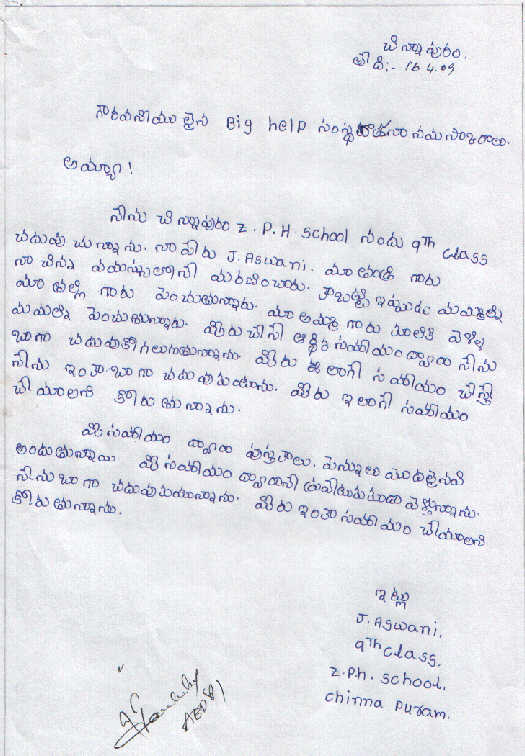 చిన్నాపురం.
తేది:- 16.4.09
గౌరవనీయులైన Big help సంస్థ నమస్కారాలు.
అమ్మా!
నేను చిన్నాపురం Z.P.H. School నందు 9th class
చదువు చున్నాను. నా పేరు J. Aswani. మా తండ్రి గారు
నా చిన్న వయస్సులోనే మరణించారు. కాబట్టి ఇప్పుడు మమ్మల్ని
మా తల్లి గారు పెంచుతున్నారు. మా అమ్మ గారు కూలికి వెళ్ళి
మమల్ని పెంచుతున్నారు. మీరు చేసే ఆర్థిక సహాయం ద్వారా నేను
బాగా చదువుకోగలుగుతున్నాను. మీరు ఈలాగే సహాయం చేస్తే
నేను ఇంకా బాగా చదువుకుంటాను. మీరు ఇలాగే సహాయం
చేయాలని కోరుతున్నాను.
మీ సహాయం ద్వారా పుస్తకాలు, పెన్నులు మొదలైనవి
అందుతున్నాయి. మీ సహాయం ద్వారానే వెళ్తున్నాను.
నేను బాగా చదువుకుంటున్నాను. మీరు ఇంకా సహాయం చేయాలని
కోరుతున్నాను.
ఇట్లు
J. Aswani.
9th class.
Z.P.h. school.
chinna puram.